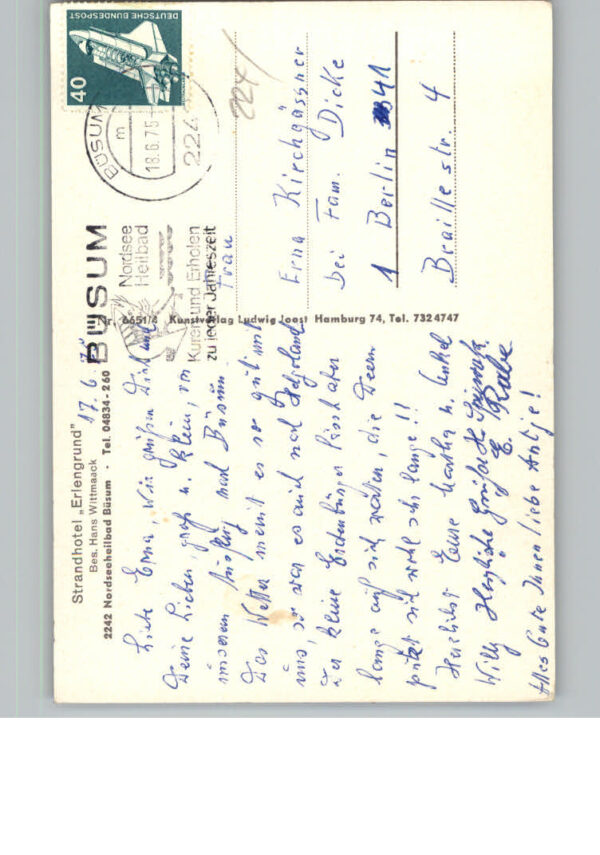 Strandhotel „Erlengrund"
Bes. Hans Wittmaack
2242 Nordseeheilbad Büsum · Tel. 04834-260
17. 6. 75
Liebe Erna, wir grüßen Dich und
Deine Lieben groß u. klein, von
unserem Ausflug nach Büsum.
Das Wetter meint es so gut mit
uns, so war es auch nach Helgoland
Der kleine Erdenbürger lässt aber
lange auf sich warten, die Deern
putzt sich wohl sehr lange!!
Herzlichst Eure Martha u. Onkel
Willy Herzliche Grüße
E. Rabe
Alles Gute Ihnen liebe Antje!
Nr. 6651/4 Kunstverlag Ludwig Joost Hamburg 74, Tel. 7324747
BÜSUM
Nordsee
Heilbad
Kuren und Erholen
zu jeder Jahreszeit
BÜSUM
m
18.6.75
224
DEUTSCHE BUNDESPOST
40
224/
Frau
Erna Kirchgässner
bei Fam. Dicke
1 Berlin 41
Braillestr. 4